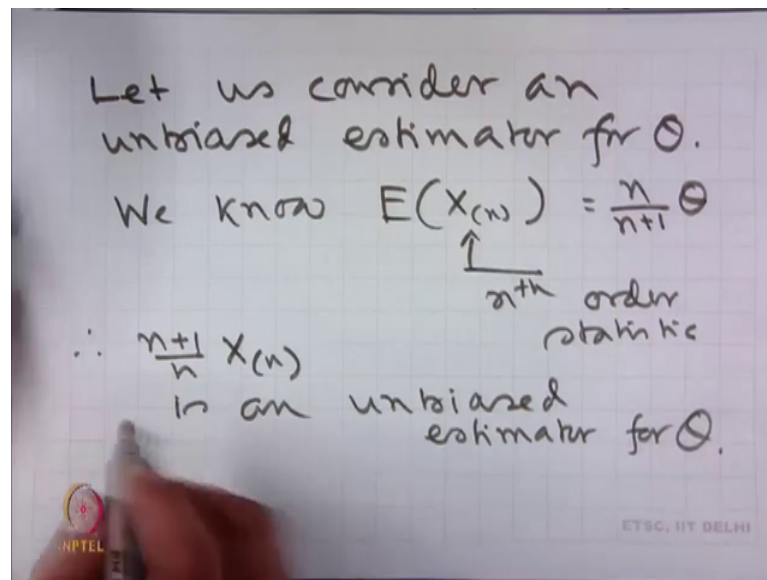 Let us consider an
unbiased estimator for θ.
We know E(X(n)) = n/n+1 θ
nth order
statistic
∴ n+1/n X(n)
is an unbiased
estimator for θ.
ETSC, IIT DELHI
NPTEL